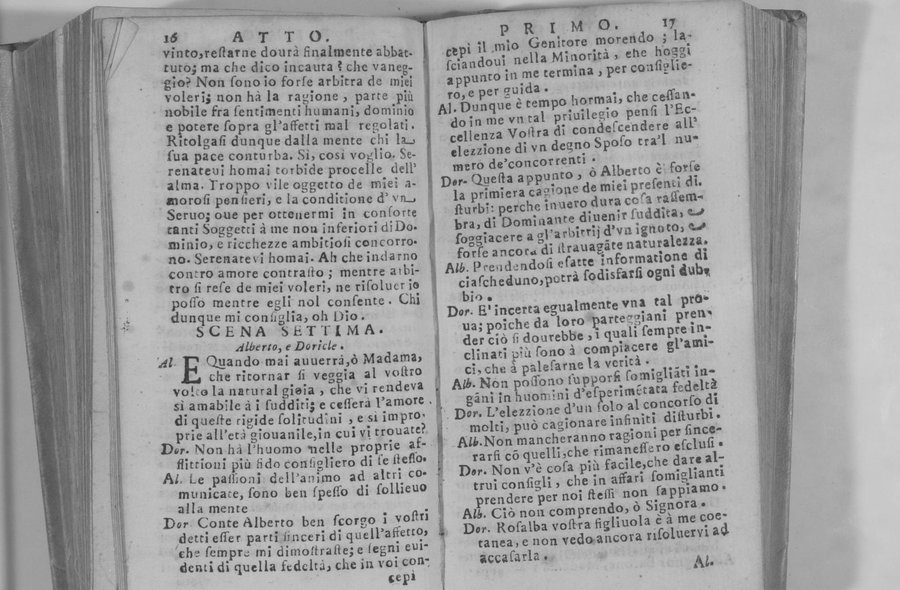 16 ATTO.
vinto, restarne dourà finalmente abbat-
tuto; ma che dico incauta? che vaneg-
gio? Non sono io forse arbitra de miei
voleri; non hà la ragione, parte più
nobile fra sentimenti humani, dominio
e potere sopra gl'affetti mal regolati.
Ritolgasi dunque dalla mente chi la
sua pace conturba. Si, così voglio. Se-
renateui homai torbide procelle dell'
alma. Troppo vile oggetto de miei a-
morosi pensieri, e la conditione d'vn
Seruo; oue per ottenermi in consorte
tanti Soggetti à me non inferiori di Do-
minio, e ricchezze ambitiosi concorro-
no. Serenatevi homai. Ah che indarno
contro amore contrasto; mentre arbi-
tro si rese de miei voleri, ne risoluer io
posso mentre egli nol consente. Chi
dunque mi consiglia, oh Dio.
SCENA SETTIMA.
Alberto, e Doricle.
Al. E Quando mai auuerrà, ò Madama,
che ritornar si veggia al vostro
volto la natural gioia, che vi rendeva
si amabile à i sudditi; e cesserà l'amore
di queste rigide solitudini, e si impro-
prie all'età giouanile, in cui vi trouate?
Dor. Non hà l'huomo nelle proprie af-
flittioni più fido consigliero di se stesso.
Al. Le passioni dell'animo ad altri co-
municate, sono ben spesso di sollieuo
alla mente
Dor Conte Alberto ben scorgo i vostri
detti esser parti sinceri di quell'affetto,
che sempre mi dimostraste; e segni eui-
denti di quella fedeltà, che in voi con-
cepì
PRIMO. 17
cepì il mio Genitore morendo; la-
sciandoui nella Minorità, che hoggi
appunto in me termina, per consiglie-
ro, e per guida.
Al. Dunque è tempo hormai, che cessan-
do in me vn tal priuilegio pensi l'Ec-
cellenza Vostra di condescendere all'
elezzione di vn degno Sposo tra'l nu-
mero de'concorrenti.
Dor. Questa appunto, ò Alberto è forse
la primiera cagione de miei presenti di-
sturbi: perche inuero dura cosa rassem-
bra, di Dominante diuenir suddita, e
soggiacere a gl'arbitrij d'vn ignoto, e
forse ancora di strauagãte naturalezza.
Alb. Prendendosi esatte informatione di
ciascheduno, potrà sodisfarsi ogni dub-
bio.
Dor. E' incerta egualmente vna tal pro-
ua; poiche da loro parteggiani pren-
der ciò si dourebbe, i quali sempre in-
clinati più sono à compiacere gl'ami-
ci, che à palesarne la verità.
Alb. Non possono supporsi somigliãti in-
gãni in huomini d'esperimẽtata fedeltà
Dor. L'elezzione d'un solo al concorso di
molti, può cagionare infiniti disturbi.
Alb. Non mancheranno ragioni per since-
rarsi cõ quelli, che rimanessero esclusi.
Dor. Non v'è cosa più facile, che dare al-
trui consigli, che in affari somiglianti
prendere per noi stessi non sappiamo.
Alb. Ciò non comprendo, ò Signora.
Dor. Rosalba vostra figliuola è à me coe-
tanea, e non vedo ancora risoluervi ad
accasarla.
Al.